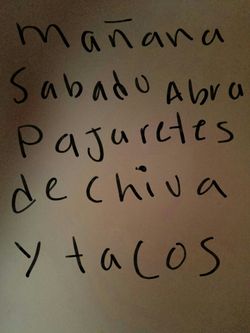 mañana
Sabado Abra
Pajaretes
de chiva
y tacos